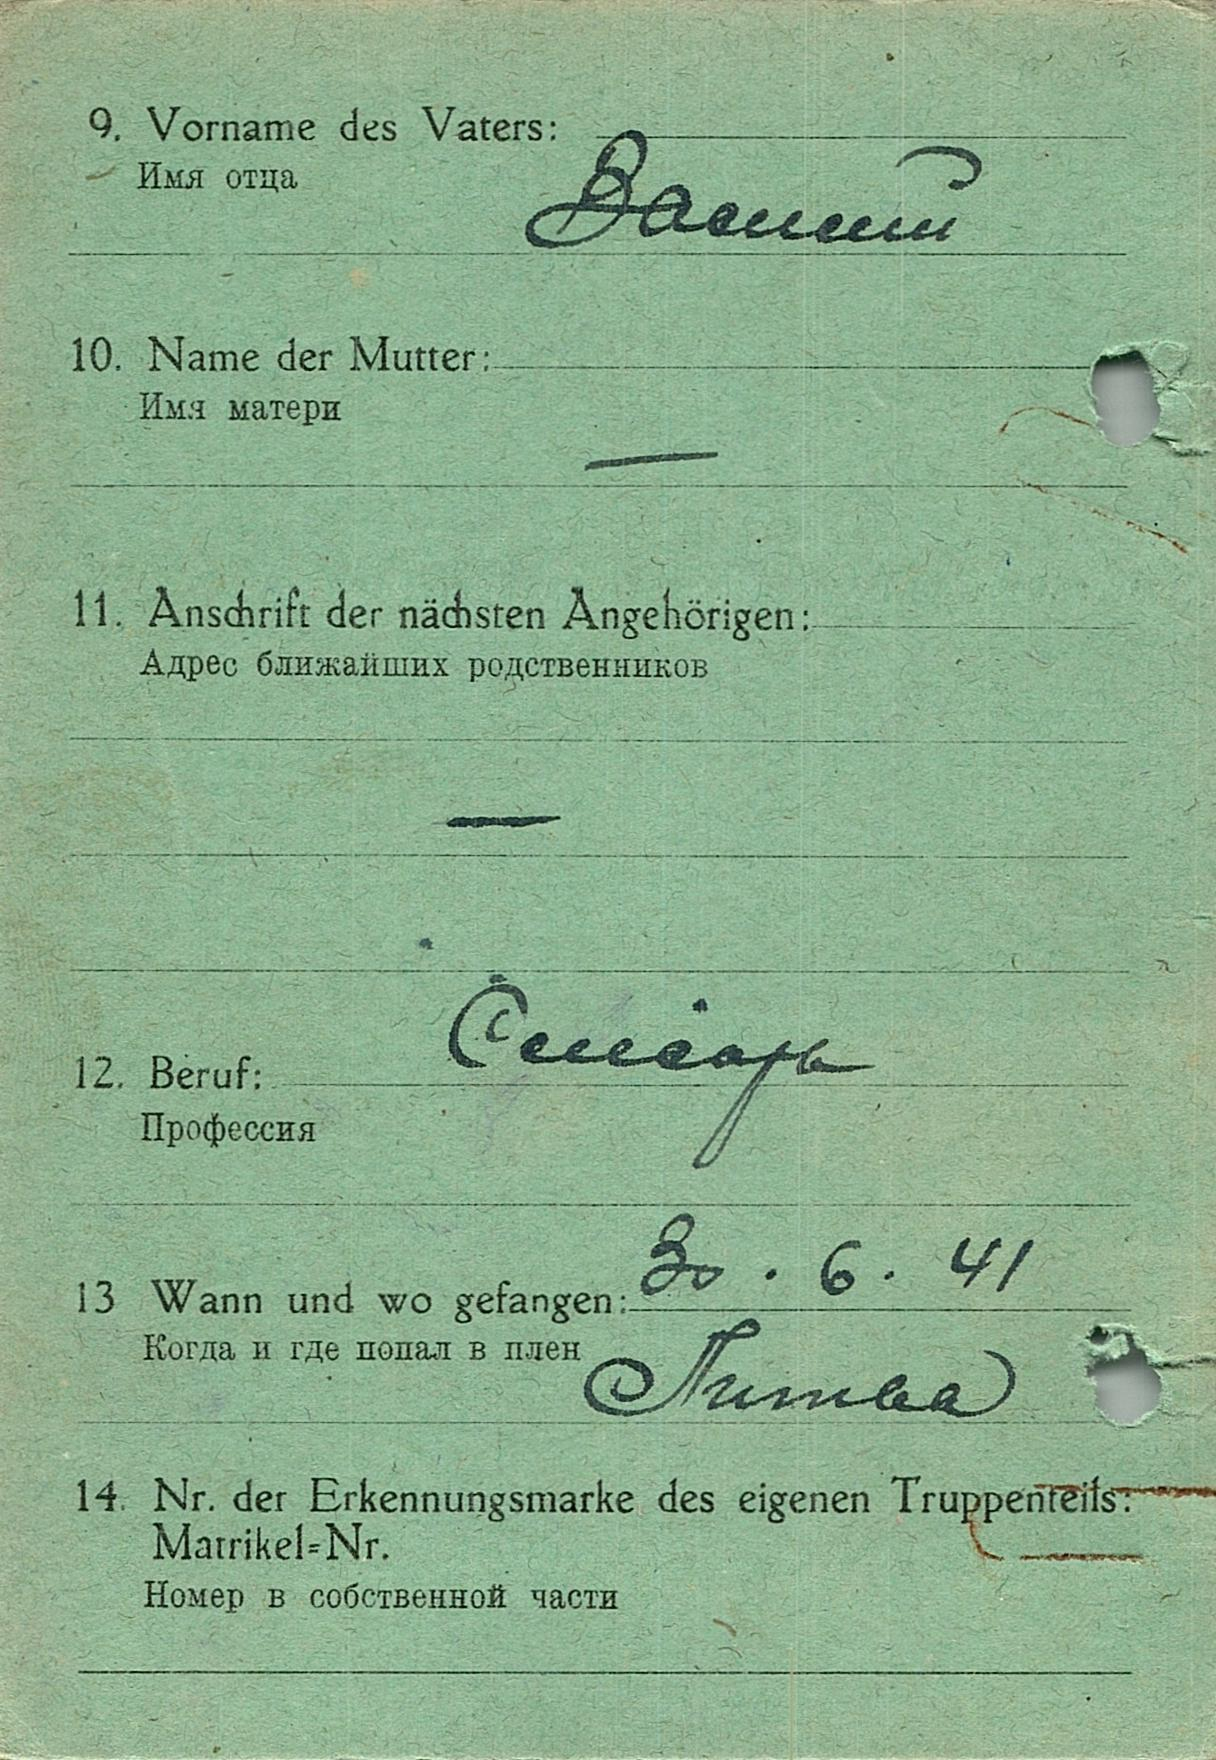 9. Vorname des Vaters:
Имя отца
Василий
10. Name der Mutter:
Имя матери
—
11. Anschrift der nächsten Angehörigen:
Адрес ближайших родственников
—
Слесарь
12. Beruf:
Профессия
13 Wann und wo gefangen: 30. 6. 41
Когда и где попал в плен Литва
14. Nr. der Erkennungsmarke des eigenen Truppenteils:
Matrikel=Nr.
Номер в собственной части